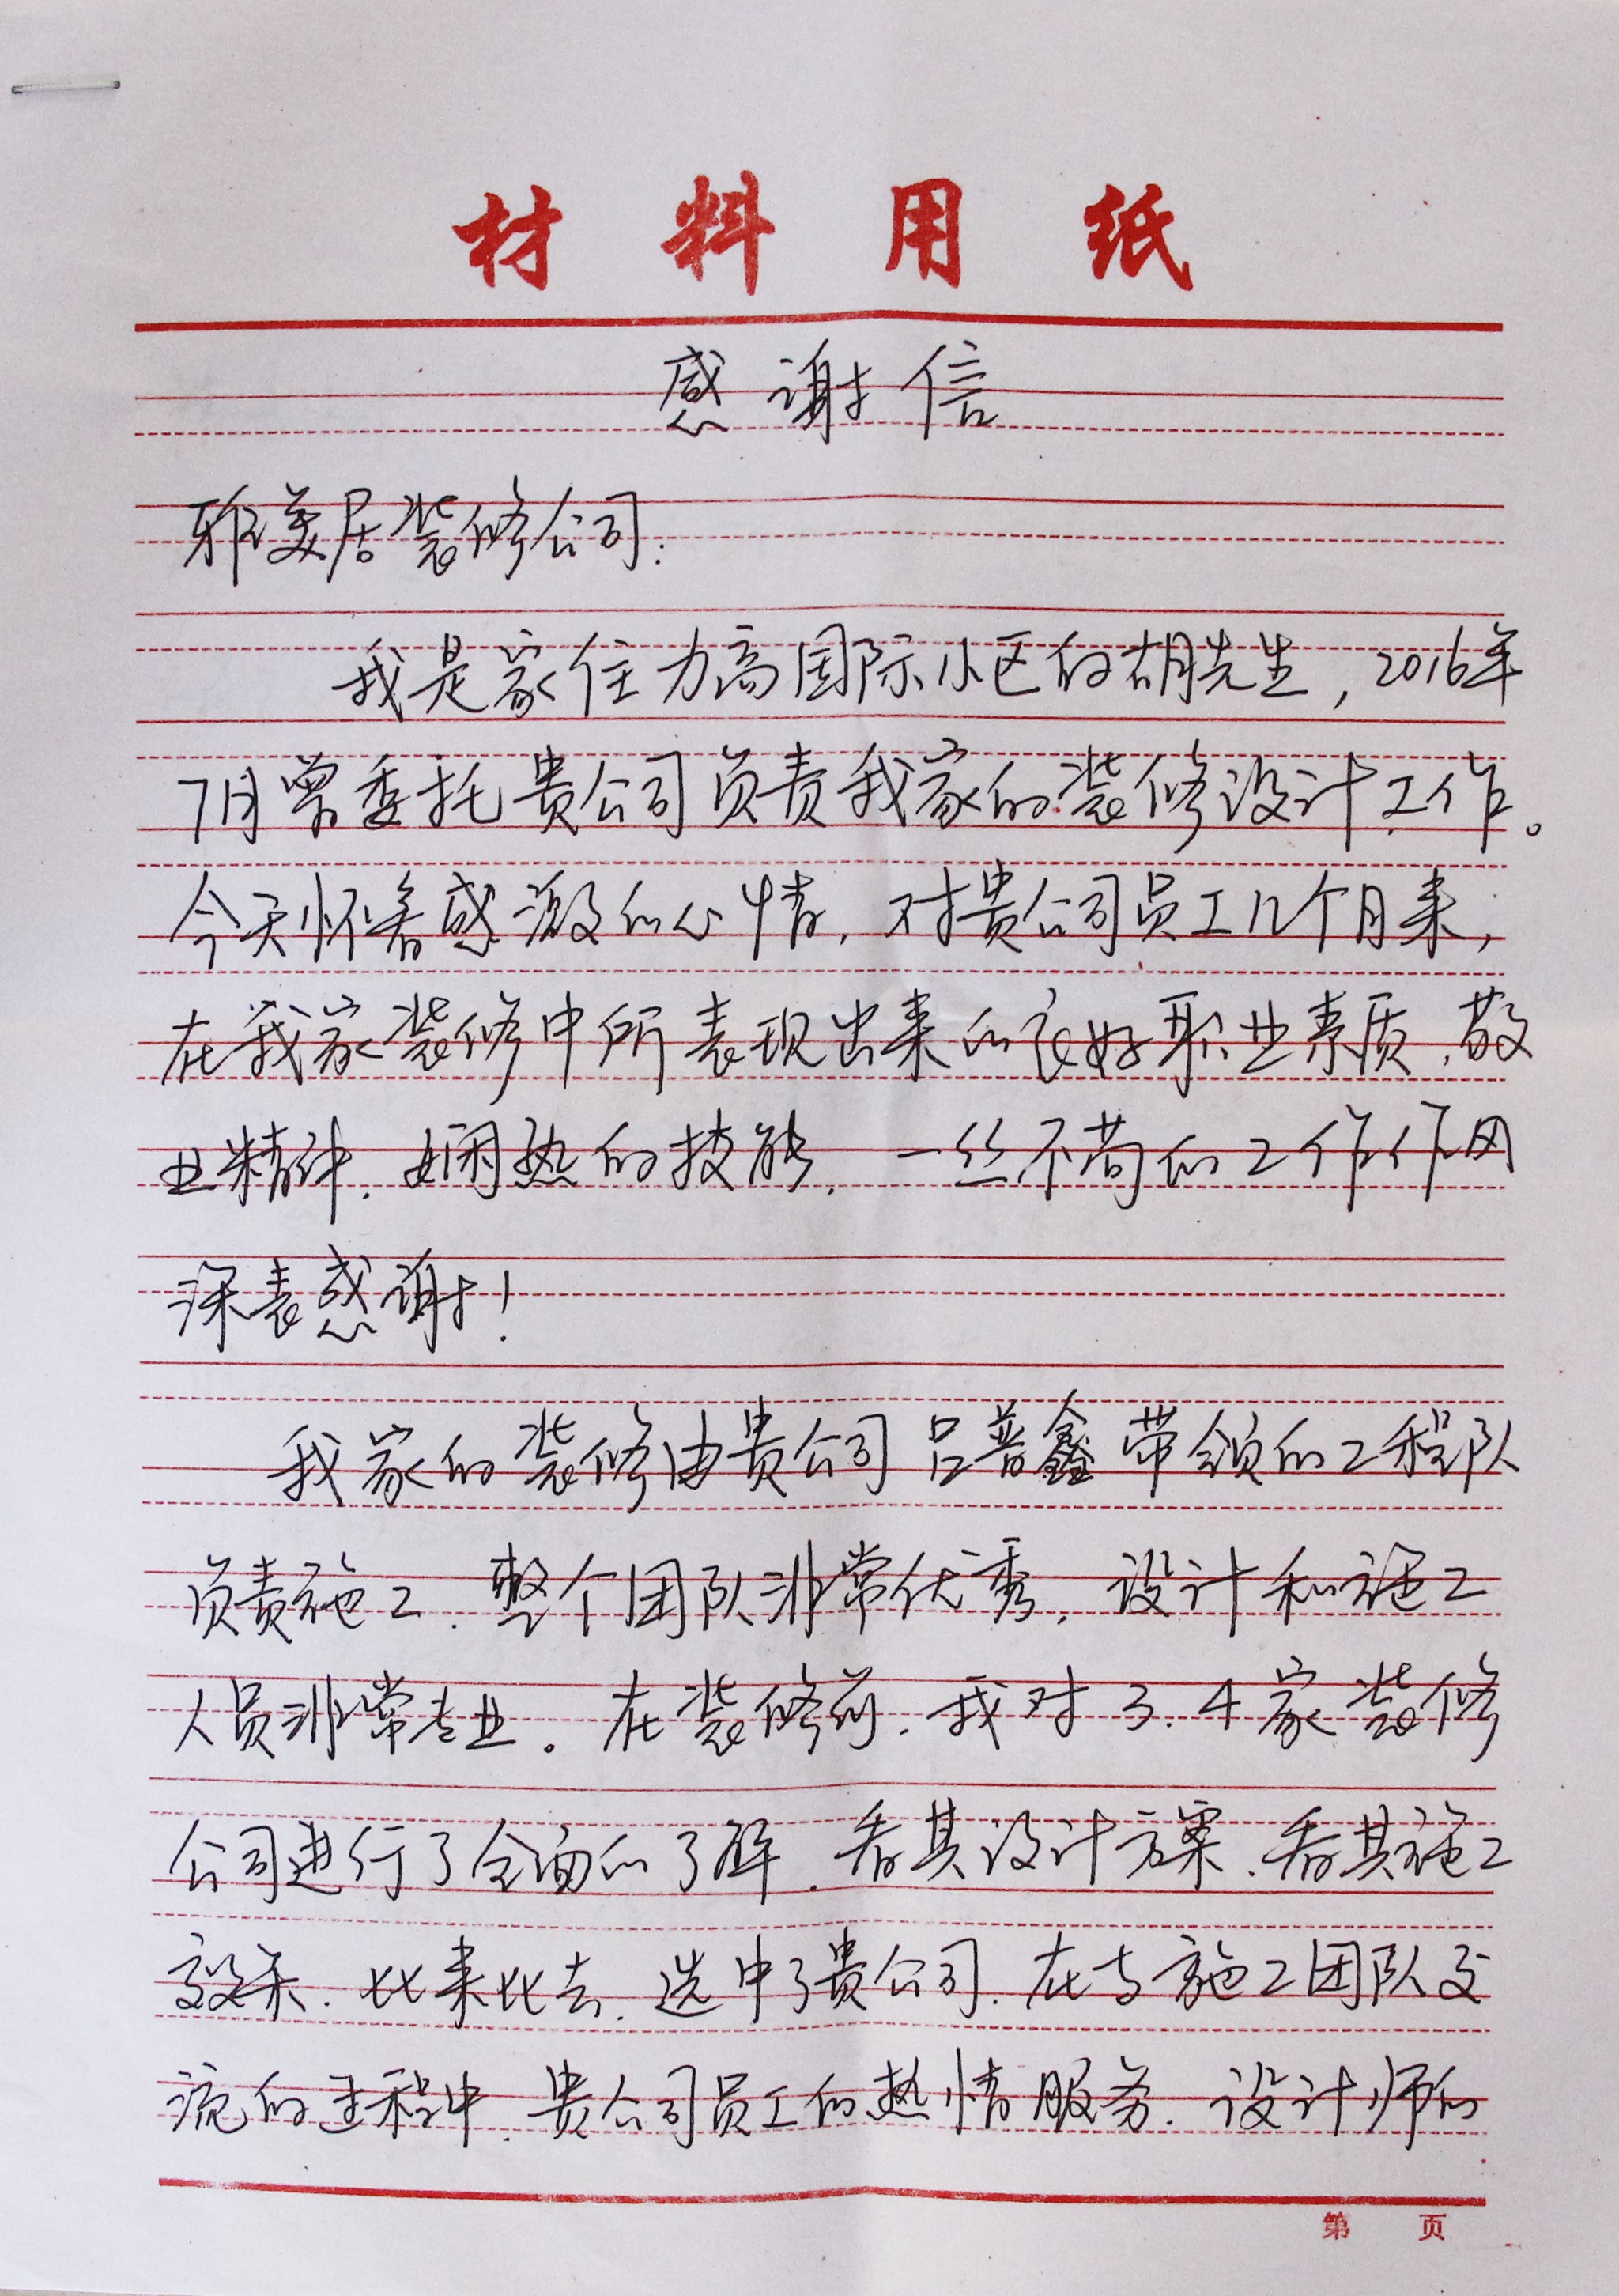 材料用纸
感谢信
雅美居装修公司：
我是家住力高国际小区的胡先生，2016年
7月曾委托贵公司负责我家的装修设计工作。
今天怀着感激的心情，对贵公司员工几个月来，
在我家装修中所表现出来的良好职业素质、敬
业精神、娴熟的技能、一丝不苟的工作作风
深表感谢！
我家的装修由贵公司吕普鑫带领的工程队
负责施工，整个团队非常优秀，设计和施工
人员非常专业。在装修前，我对3、4家装修
公司进行了全面的了解，看其设计方案、看其施工
效果，比来比去，选中了贵公司，在与施工团队交
流的过程中，贵公司员工的热情服务、设计师的
第 页